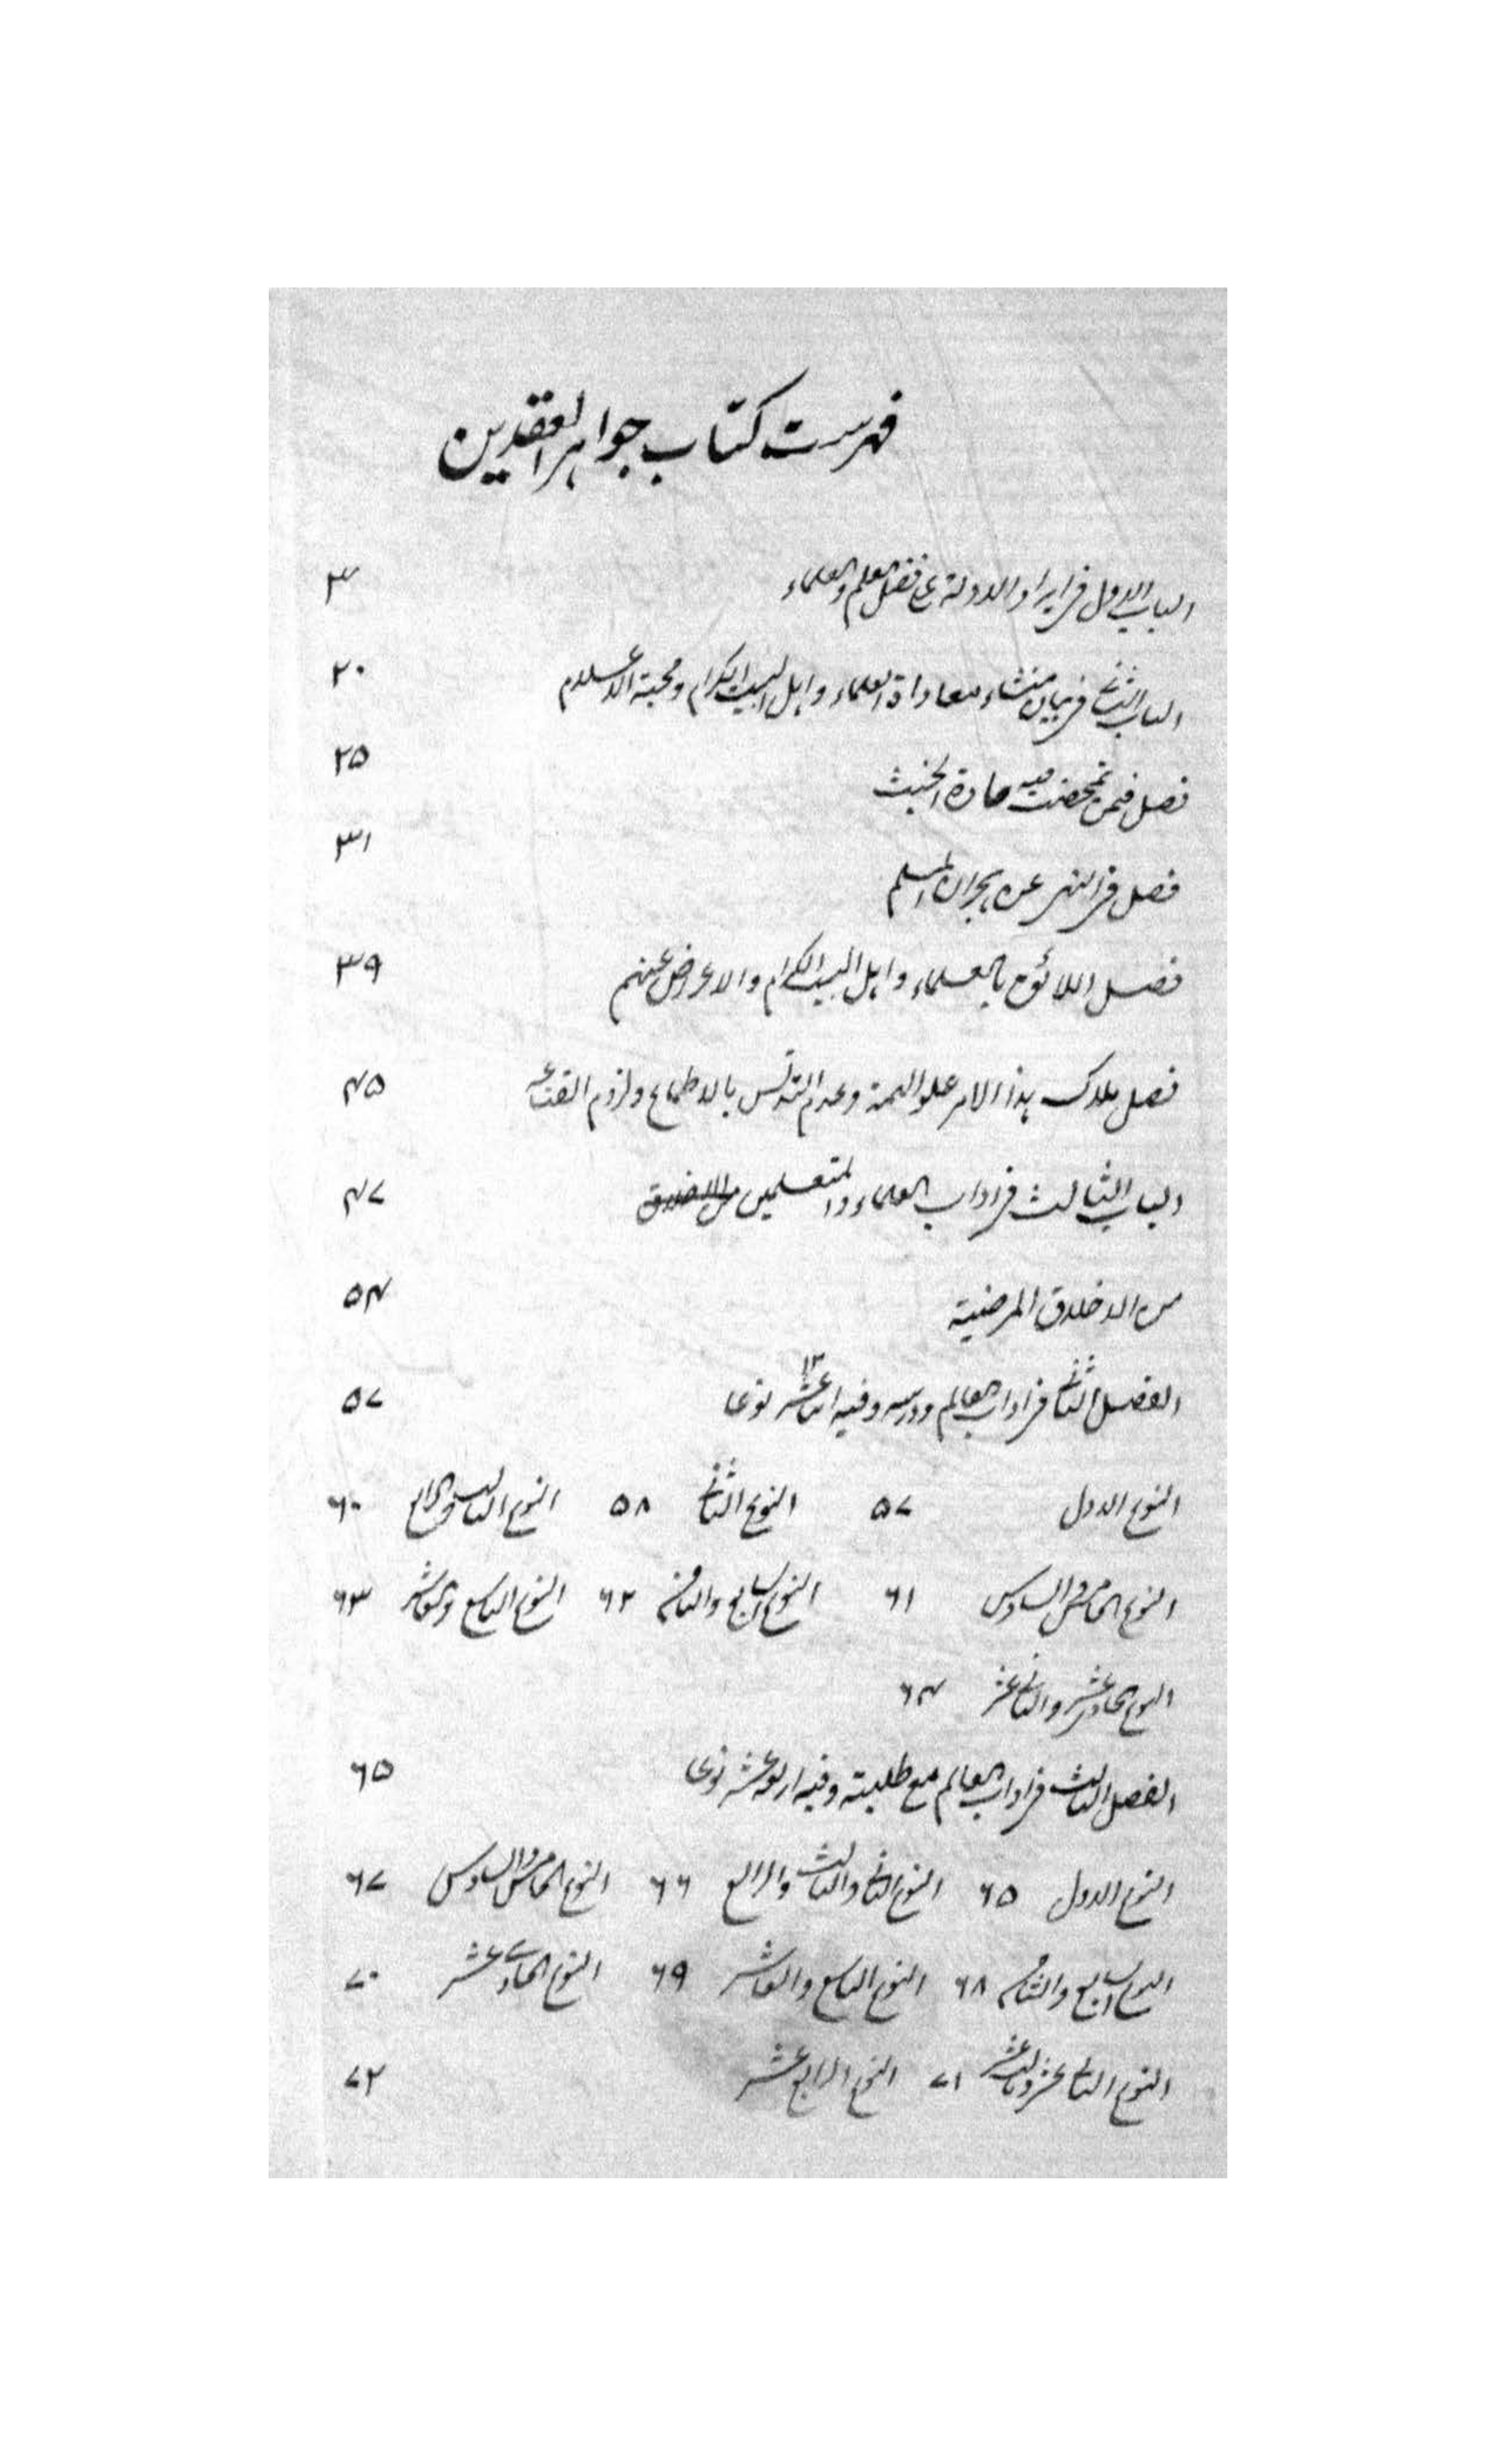 فهرست كتاب جواهر العقدين
الباب الاول في ايراد الادلة على فضل العلم والعلماء ٣
الباب الثاني في بيان منشاء معاداة العلماء واهل البيت الكرام ومحبة الاعلام ٢٠
فصل فيمن تمحضت فيه مادة الخبث ٢٥
فصل في النهي عن هجران المسلم ٣١
فصل اللائق بالعلماء واهل البيت الكرام والاعراض عنهم ٣٩
فصل ملاك هذا الامر علو الهمة وعدم التدنس بالاطماع ولزوم القناعة ٤٥
الباب الثالث في اداب العلماء والمتعلمين من الاخلاق ٤٧
من الاخلاق المرضية ٥٤
الفصل الثاني في اداب العالم ودرسه وفيه اثنا عشر ١٢ نوعا ٥٧
النوع الاول ٥٧ النوع الثاني ٥٨ النوع الثالث والرابع ٦٠
النوع الخامس والسادس ٦١ النوع السابع والثامن ٦٢ النوع التاسع والعاشر ٦٣
النوع الحادي عشر والثاني عشر ٦٤
الفصل الثالث في اداب العالم مع طلبته وفيه اربعة عشر نوعا ٦٥
النوع الاول ٦٥ النوع الثاني والثالث والرابع ٦٦ النوع الخامس والسادس ٦٧
النوع السابع والثامن ٦٨ النوع التاسع والعاشر ٦٩ النوع الحادي عشر ٧٠
النوع الثاني عشر وثالث عشر ٧١ النوع الرابع عشر ٧٢